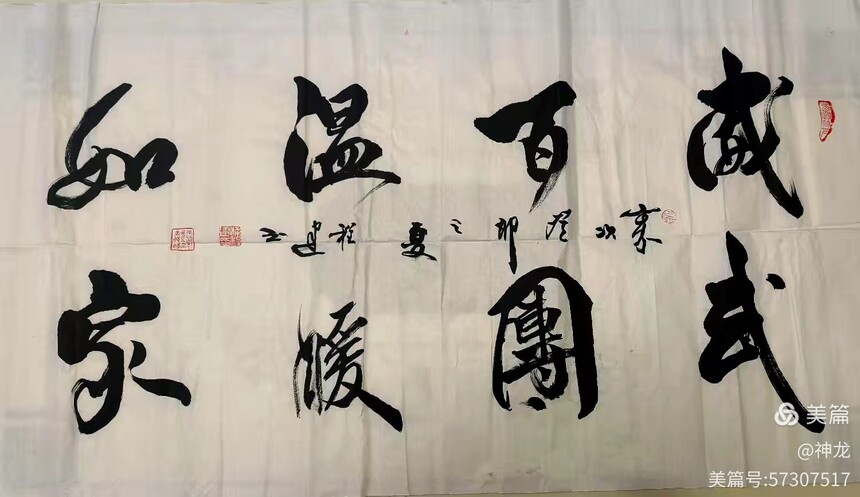 威武
百團
温暖
如家
次癸卯之夏程建书
美篇
@神龙
美篇号:57307517